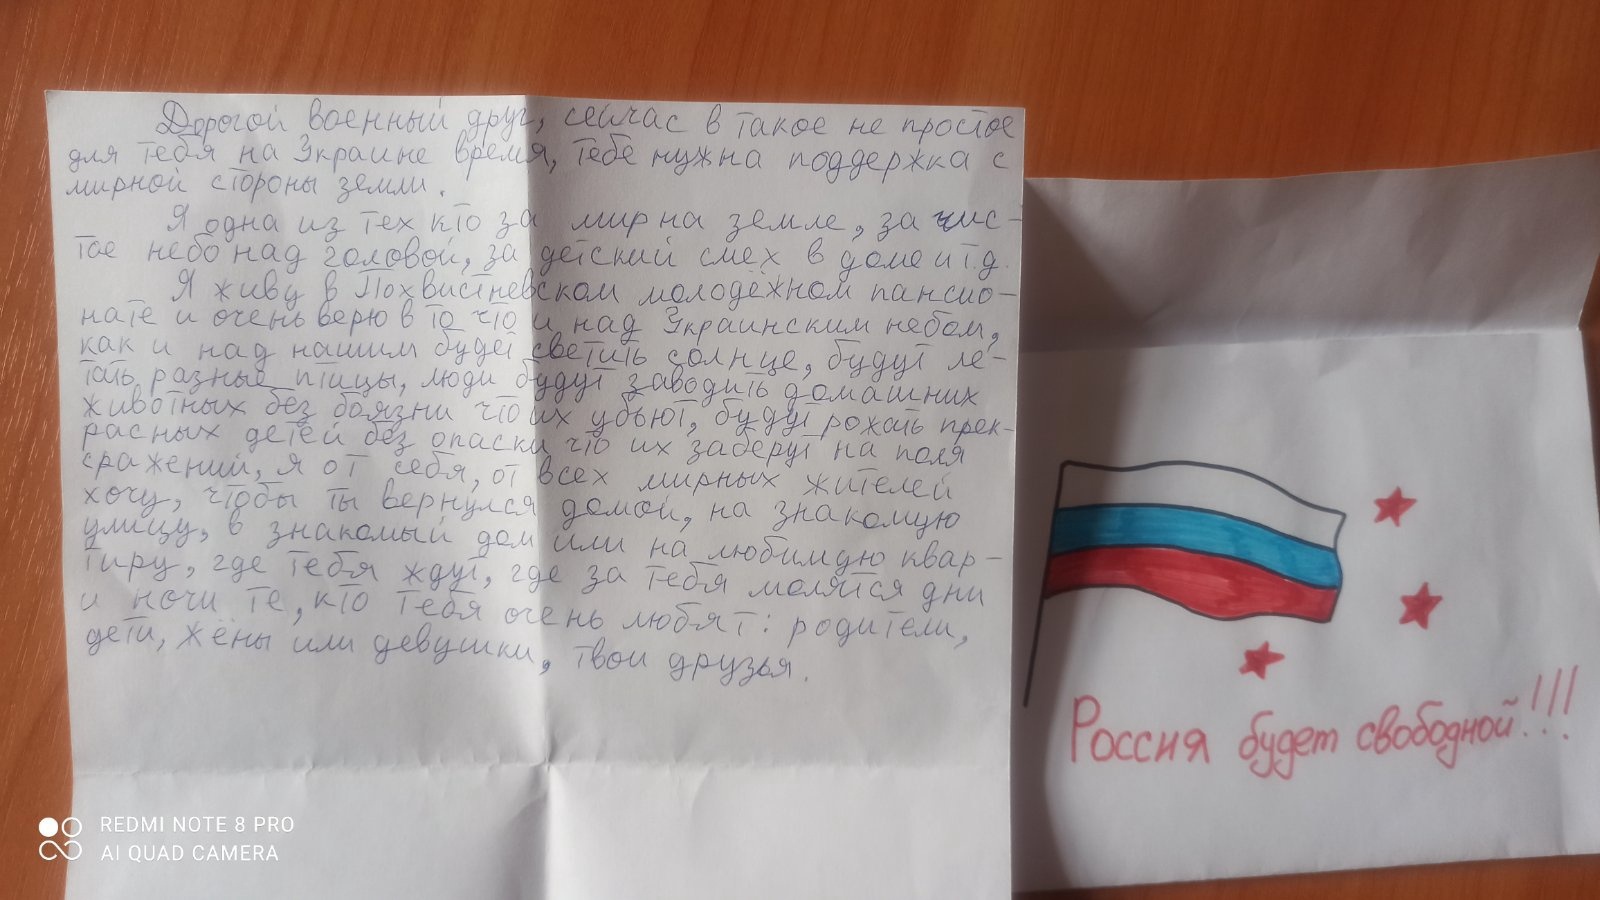 Дорогой военный друг, сейчас в такое не простое
для тебя на Украине время, тебе нужна поддержка с
мирной стороны земли.
Я одна из тех кто за мир на земле, за чис-
тое небо над головой, за детский смех в доме и т.д.
Я живу в Похвистневском молодёжном пансио-
нате и очень верю в то что и над Украинским небом,
как и над нашим будет светить солнце, будут ле-
тать разные птицы, люди будут заводить домашних
животных без боязни что их убьют, будут рожать прек-
расных детей без опаски что их заберут на поля
сражений, я от себя, от всех мирных жителей
хочу, чтобы ты вернулся домой, на знакомую
улицу, в знакомый дом или на любимую квар-
тиру, где тебя ждут, где за тебя молятся дни
и ночи те, кто тебя очень любят: родители,
дети, жёны или девушки, твои друзья.
Россия будет свободной!!!
REDMI NOTE 8 PRO
AI QUAD CAMERA